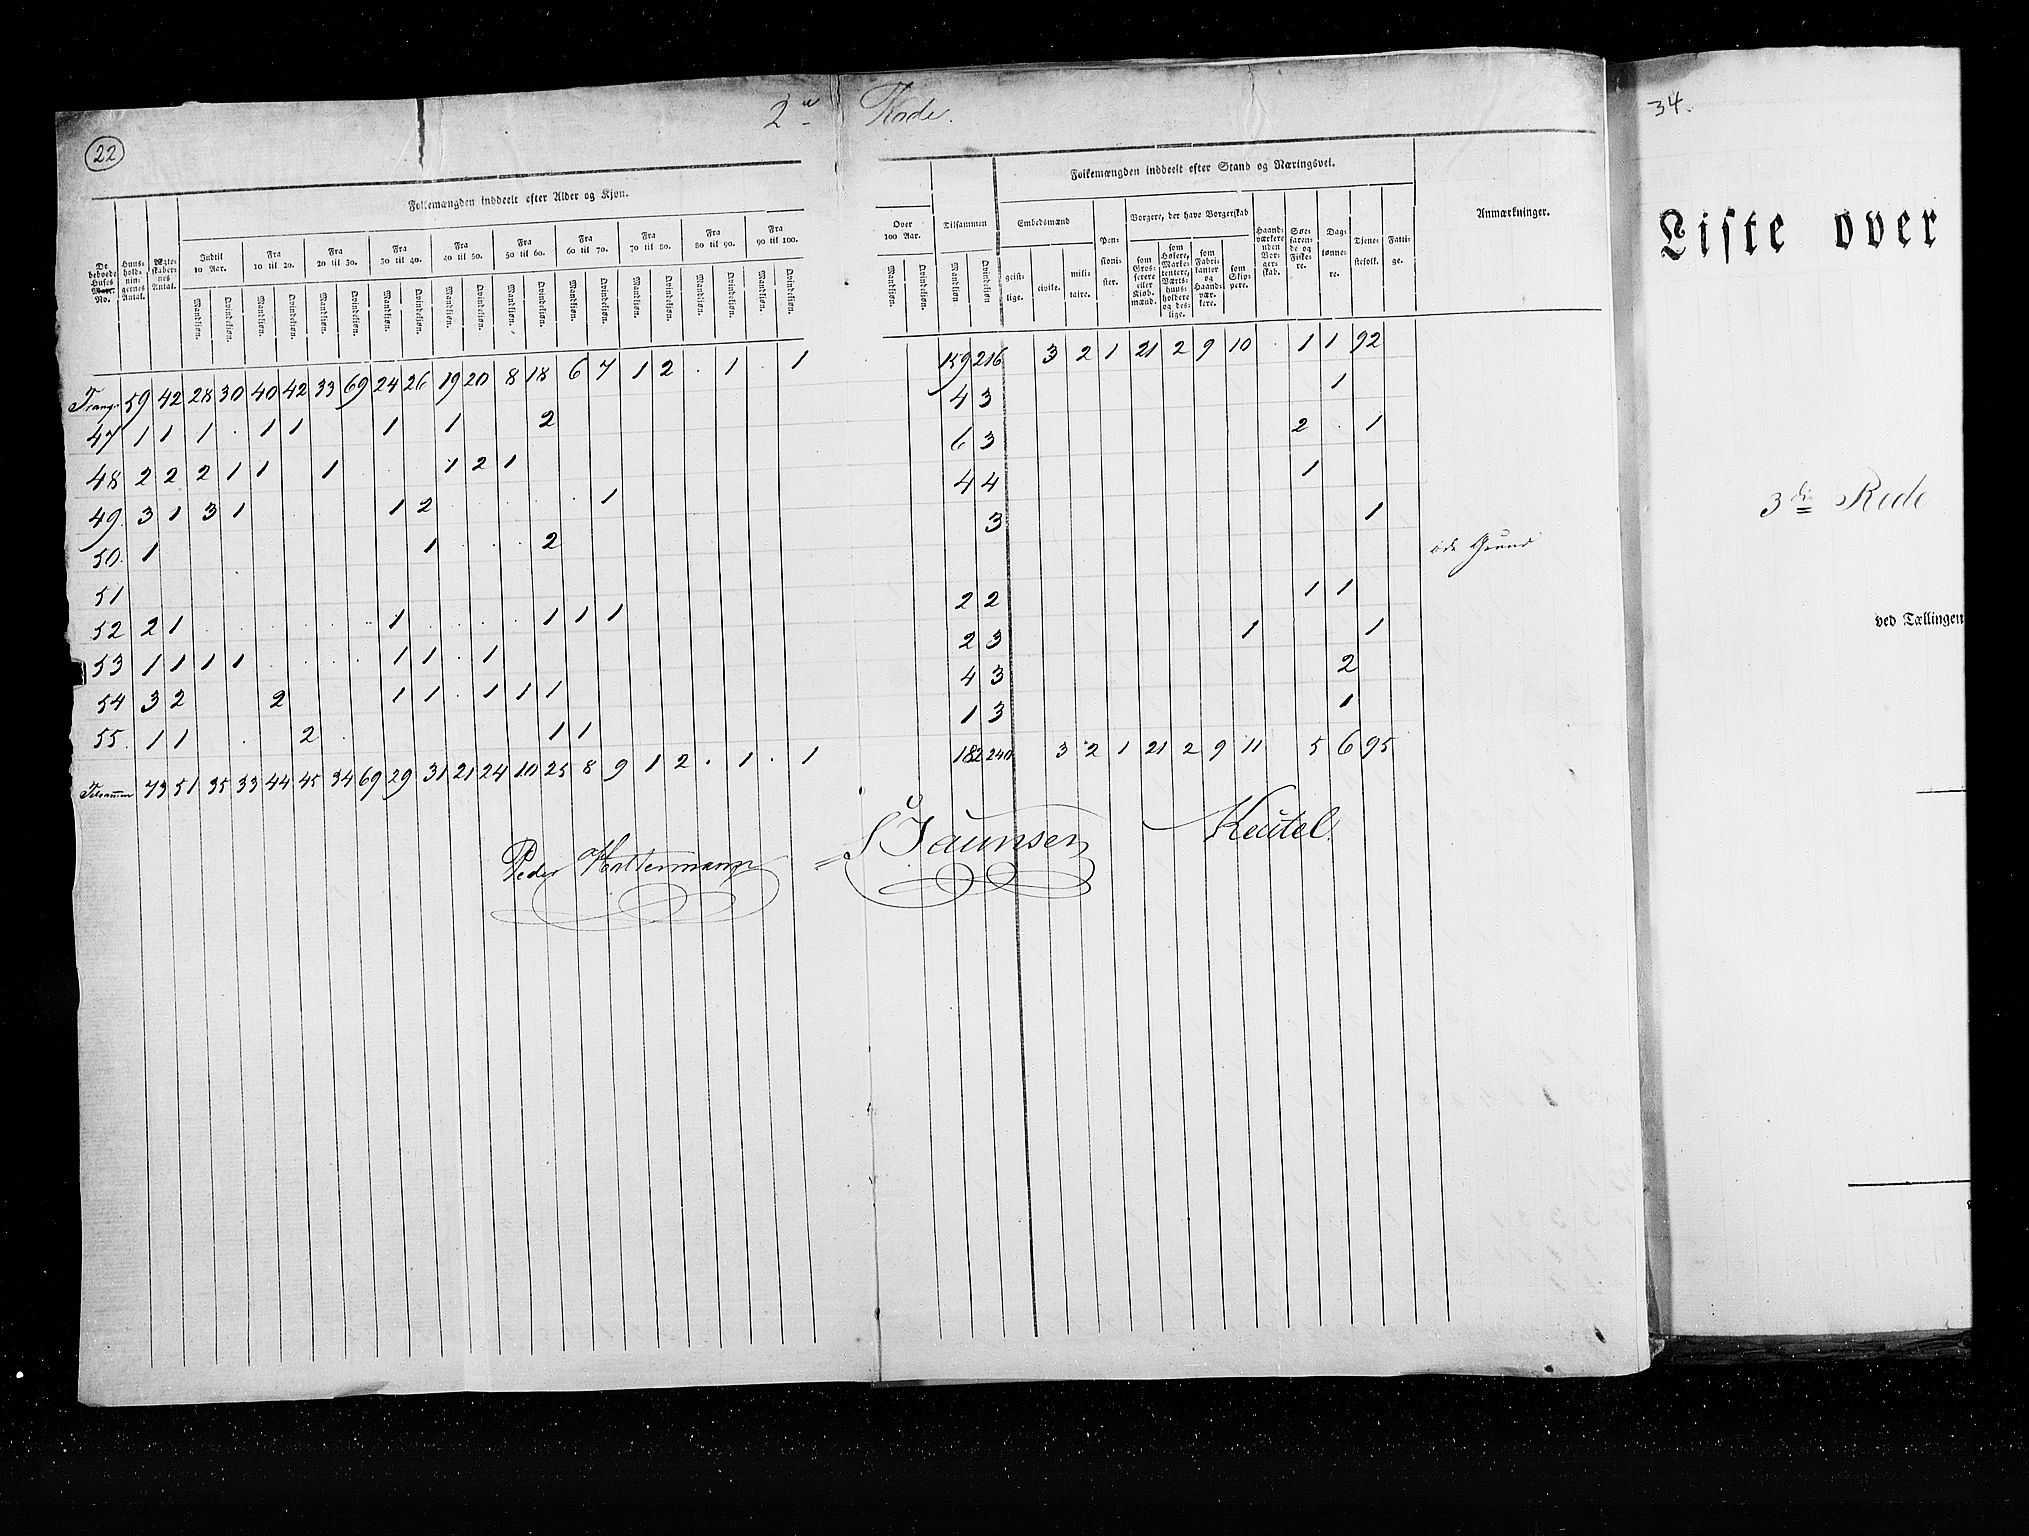 22
2den Rode.
Folkemængden inddeelt efter Alder og Kjøn.
Folkemængden inddeelt efter Stand og Næringsvei.
De beboede Huses Matr. No. | Huusholdningernes Antal. | Ægteskabernes Antal. | Indtil 10 Aar. | Fra 10 til 20. | Fra 20 til 30. | Fra 30 til 40. | Fra 40 til 50. | Fra 50 til 60. | Fra 60 til 70. | Fra 70 til 80. | Fra 80 til 90. | Fra 90 til 100. | Over 100 Aar. | Tilsammen | Embedsmænd | Pensionister. | Borgere, der have Borgerskab | Haandværkere uden Borgerskab. | Søefarende og Fiskere. | Daglønnere. | Tjenestefolk. | Fattige. | Anmærkninger.
Mandkjøn. Qvindekjøn. Mandkjøn. Qvindekjøn. Mandkjøn. Qvindekjøn. Mandkjøn. Qvindekjøn. Mandkjøn. Qvindekjøn. Mandkjøn. Qvindekjøn. Mandkjøn. Qvindekjøn. Mandkjøn. Qvindekjøn. Mandkjøn. Qvindekjøn. Mandkjøn. Qvindekjøn. Mandkjøn. Qvindekjøn. Mandkjøn Qvindekjøn. geistlige. civile. militaire. som Grosserere eller Kjøbmænd. som Høkere, Marketentere, Værtshuusholdere og deslige. som Fabrikanter og Haandværkere. som Skippere.
Transp. 59 42 28 30 40 42 33 69 24 26 19 20 8 18 6 7 1 2 . 1 . 1 159 216 3 2 1 21 2 9 10 . 1 1 92
47 1 1 1 . 1 1 1 1 2 4 3 1
48 2 2 2 1 1 1 1 2 1 6 3 2 . 1
49. 3 1 3 1 1 2 1 4 4 1
50. 1 1 2 3 1
51 øde Grund
52 2 1 1 1 1 1 2 2 1 1
53 1 1 1 1 1 1 . 1 2 3 1 1
54 3 2 2 1 1 . 1 1 1 4 3 2
55. 1 1 2 1 1 1 3 1
Tilsammen 73 51 35 33 44 45 34 69 29 31 21 24 10 25 8 9 1 2 . 1 . 1 182 240 3 2 1 21 2 9 11 5 6 95
Peder Holtermann
S Jaunsen
Keütel.
34.
Liste over
3die Rode
ved Tællingen